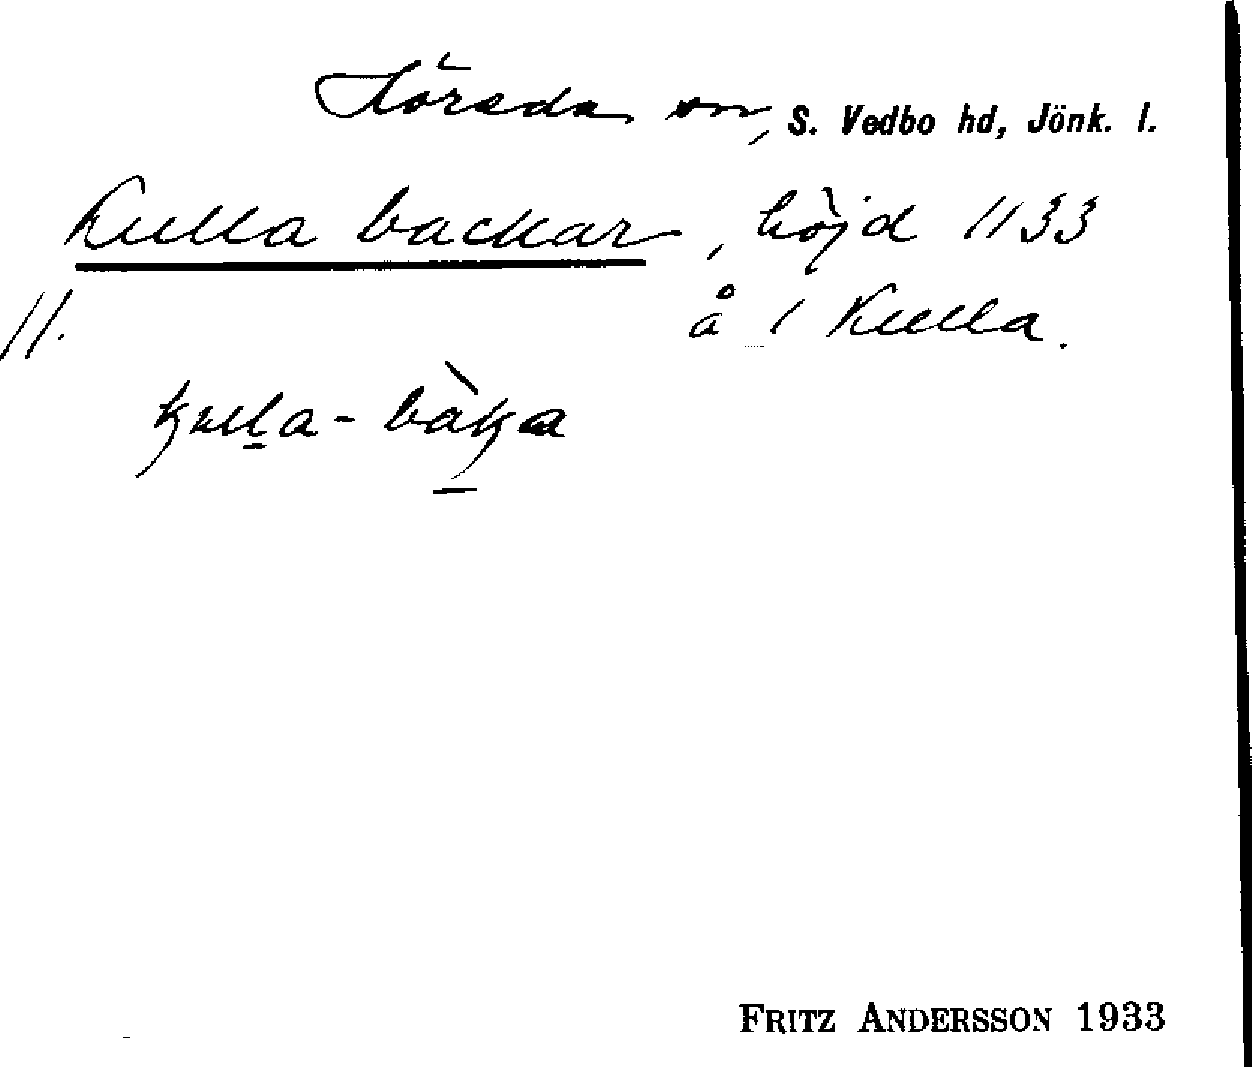 Höreda sn, S. Vedbo hd, Jönk. l.
Kulla backar, höjd 1133
11. å 1 Kulla.
kulla-bàka
FRITZ ANDERSSON 1933